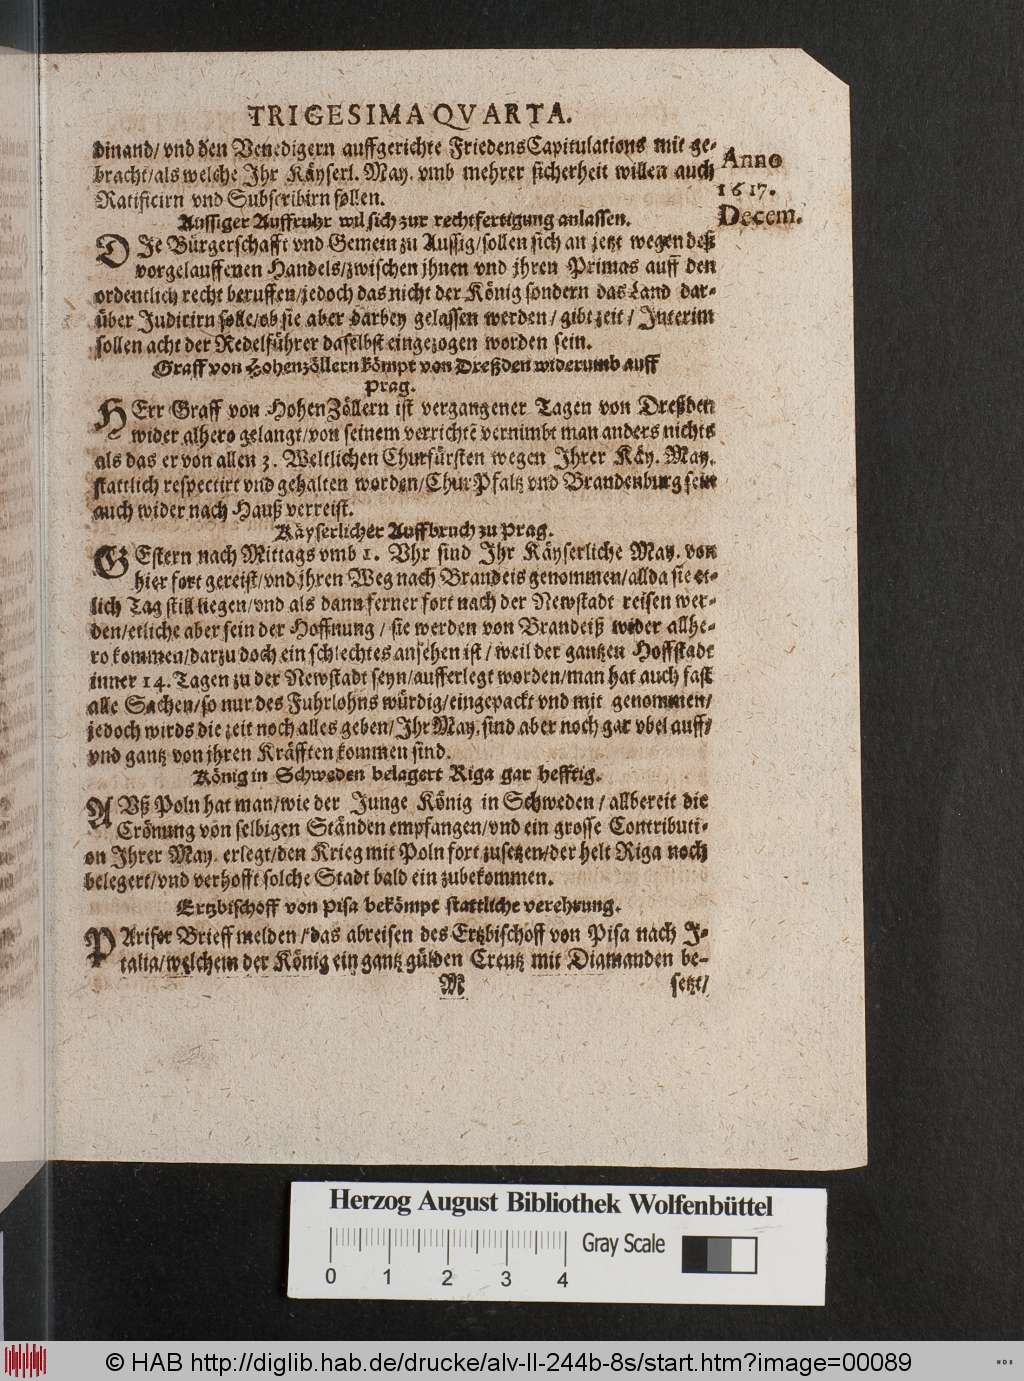 TRIGESIMA QVARTA.
dinand/ vnd den Venedigern auffgerichte FriedensCapitulations mit ge-
bracht/ als welche Ihr Käyserl. May. vmb mehrer sicherheit willen auch
Ratificirn vnd Subscribirn sollen.
Anno
1617.
Decem.
Aussiger Auffruhr wil sich zur rechtfertigung anlassen.
DIe Bürgerschafft vnd Gemein zu Aussig/ sollen sich an jetzt wegen deß
vorgelauffenen Handels/ zwischen jhnen vnd jhren Primas auff den
ordentlich recht beruffen/ jedoch das nicht der König sondern das Land dar-
über Judicirn solle/ ob sie aber darbey gelassen werden/ gibt zeit/ Interim
sollen acht der Redelführer daselbst eingezogen worden sein.
Graff von Hohenzöllern kömpt von Dreßden widerumb auff
Prag.
HErr Graff von HohenZöllern ist vergangener Tagen von Dreßden
wider alhero gelangt/ von seinem verrichtẽ vernimbt man anders nichts
als das er von allen 3. Weltlichen Churfürsten wegen Ihrer Käy. May.
stattlich respectirt vnd gehalten worden/ ChurPfaltz vnd Brandenburg sein
auch wider nach Hauß verreist.
Käyserlicher Auffbruch zu Prag.
GEstern nach Mittags vmb 1. Vhr sind Ihr Käyserliche May. von
hier fort gereist/ vnd jhren Weg nach Brandeis genommen/ allda sie et-
lich Tag still liegen/ vnd als dann ferner fort nach der Newstadt reisen wer-
den/ etliche aber sein der Hoffnung/ sie werden von Brandeiß wider allhe-
ro kommen/ darzu doch ein schlechtes ansehen ist/ weil der gantzen Hoffstadt
inner 14. Tagen zu der Newstadt seyn/ aufferlegt worden/ man hat auch fast
alle Sachen/ so nur des Fuhrlohns würdig/ eingepackt vnd mit genommen/
jedoch wirds die zeit noch alles geben/ Ihr May. sind aber noch gar vbel auff/
vnd gantz von jhren Kräfften kommen sind.
König in Schweden belagert Riga gar hefftig.
AVß Poln hat man/ wie der Junge König in Schweden/ allbereit die
Crönung von selbigen Ständen empfangen/ vnd ein grosse Contributi-
on Ihrer May. erlegt/ den Krieg mit Poln fort zusetzen/ der helt Riga noch
belegert/ vnd verhofft solche Stadt bald ein zubekommen.
Ertzbischoff von Pisa bekömpt stattliche verehrung.
PAriser Brieff melden/ das abreisen des Ertzbischoff von Pisa nach J-
talia/ welchem der König ein gantz gülden Creutz mit Diamanden be-
M
setzt/
Herzog August Bibliothek Wolfenbüttel
0 1 2 3 4
Gray Scale
© HAB http://diglib.hab.de/drucke/alv-ll-244b-8s/start.htm?image=00089